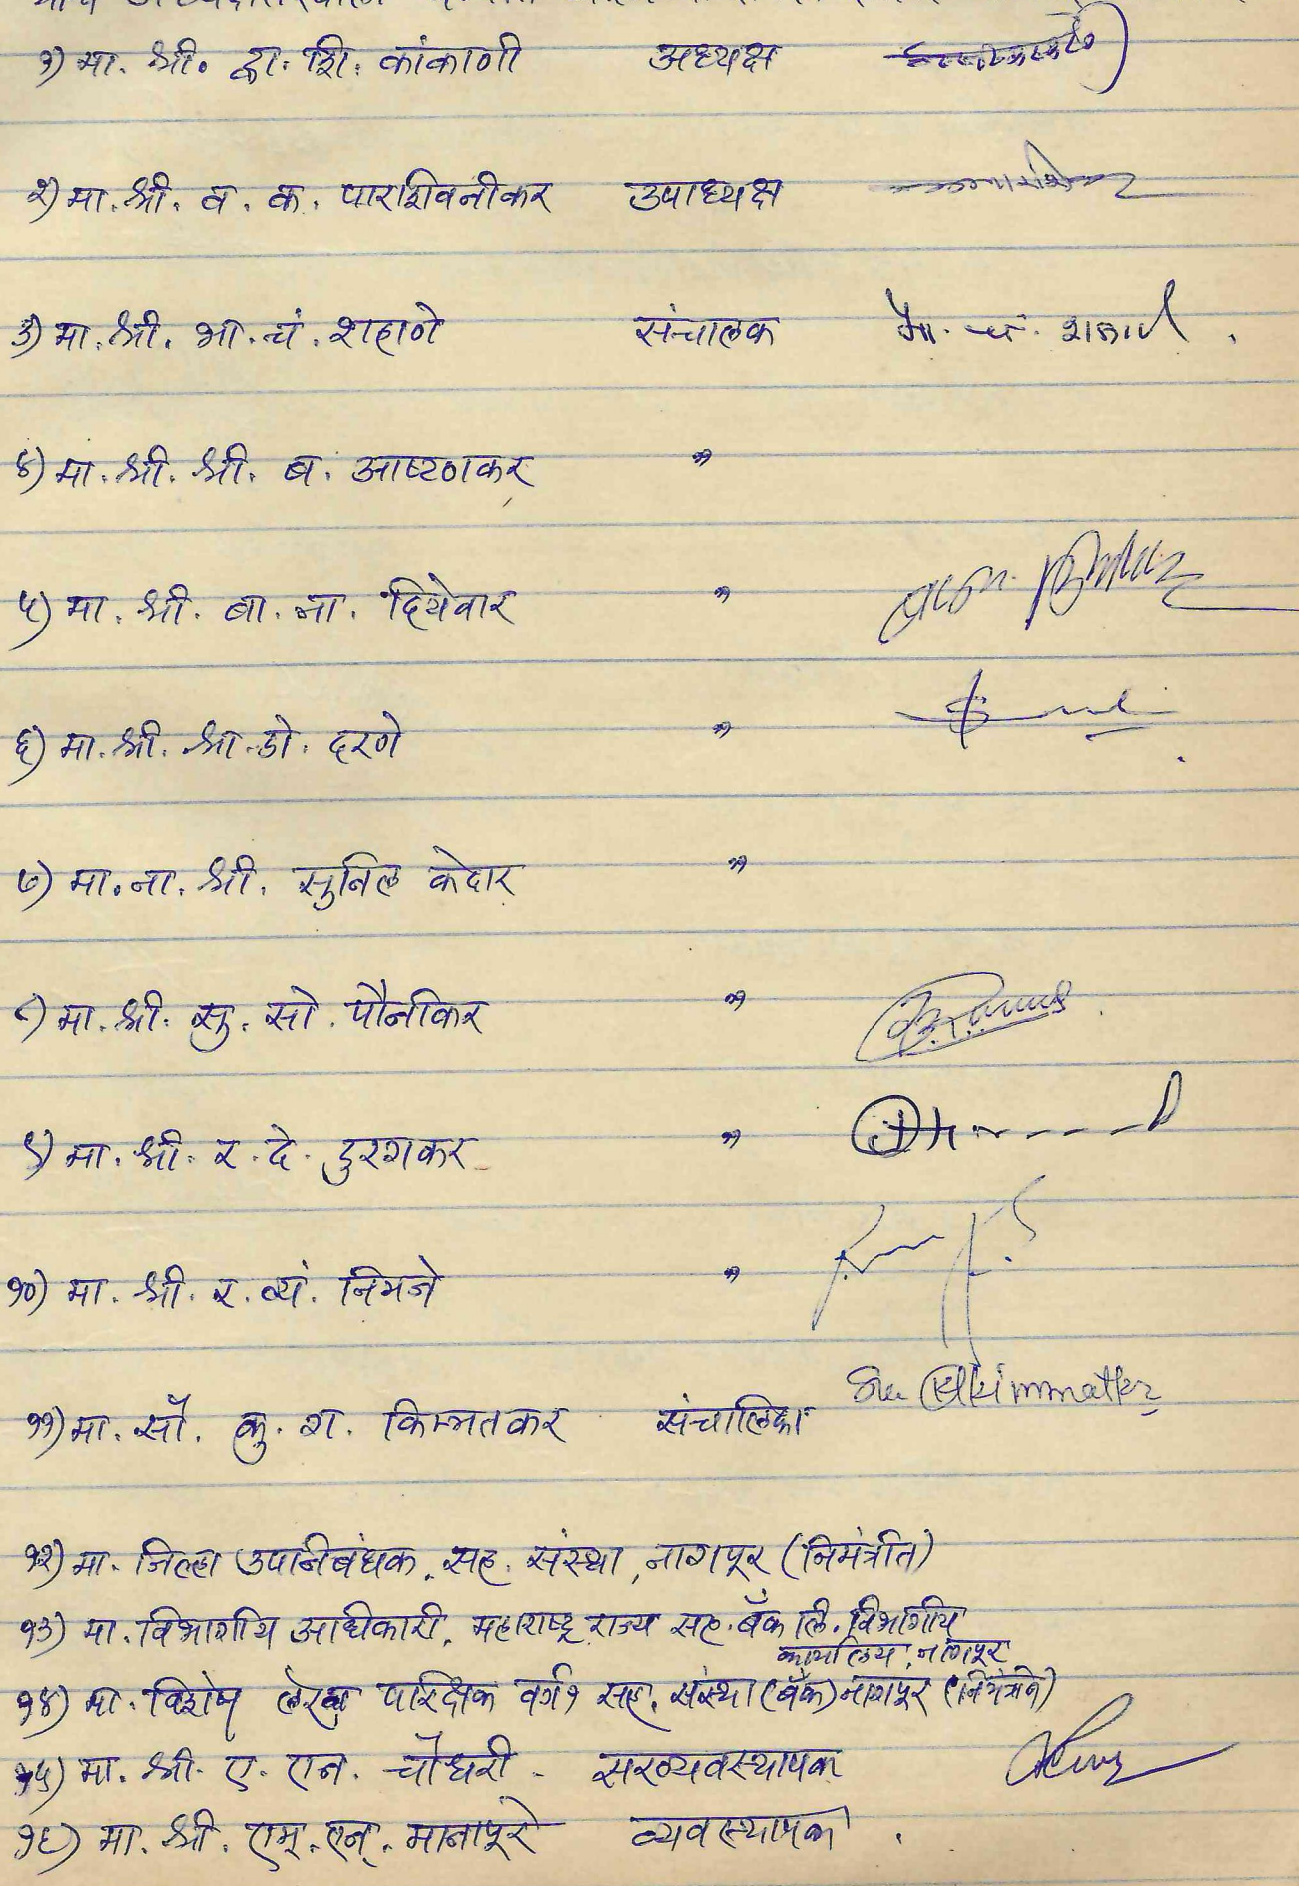 १) मा. श्री. द्वा. शि. कांकाणी अध्यक्ष
२) मा. श्री. व. क. पारशिवनीकर उपाध्यक्ष
३) मा. श्री. भा. चं. शहाणे संचालक भा. चं. शहाणे.
४) मा. श्री. श्री. ब. आष्टणकर "
५) मा. श्री. बा. ना. दियेवार "
६) मा. श्री. श्रा. डो. दरणे "
७) मा. ना. श्री. सुनिल केदार "
८) मा. श्री. सु. सो. पौनीकर "
९) मा. श्री. र. दे. दुरुगकर "
१०) मा. श्री. र. व्यं. निमजे "
११) मा. सौ. कु. श. किम्मतकर संचालिका
१२) मा. जिल्हा उपनिबंधक, सह. संस्था, नागपूर (निमंत्रीत)
१३) मा. विभागीय अधिकारी, महाराष्ट्र राज्य सह. बँक लि. विभागीय
कार्यालय, नागपूर
१४) मा. विशेष लेखा परिक्षक वर्ग १ सह. संस्था (बँक) नागपूर (निमंत्रीत)
१५) मा. श्री. ए. एन. चौधरी - सरव्यवस्थापक
१६) मा. श्री. एम्. एन्. मानापूरे व्यवस्थापक.